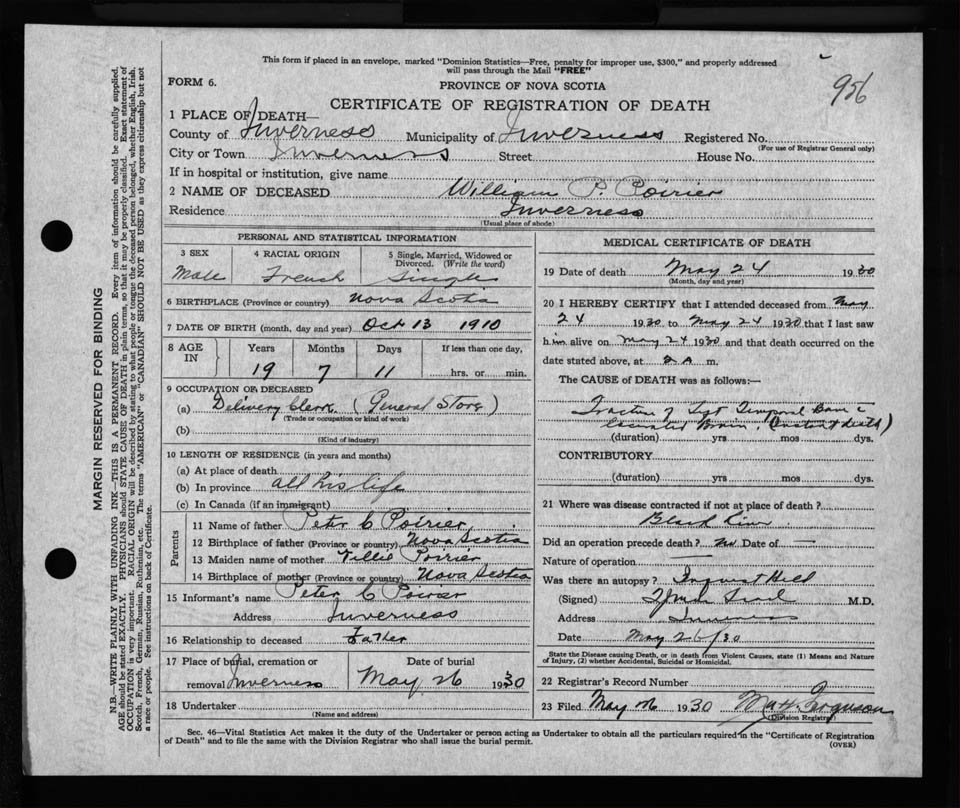 This form if placed in an envelope, marked "Dominion Statistics—Free, penalty for improper use, $300," and properly addressed
will pass through the Mail "FREE"
956
FORM 6.
PROVINCE OF NOVA SCOTIA
CERTIFICATE OF REGISTRATION OF DEATH
1 PLACE OF DEATH—
County of Inverness Municipality of Inverness Registered No.
(For use of Registrar General only)
City or Town Inverness Street House No.
If in hospital or institution, give name
2 NAME OF DECEASED William P. Poirier
Residence Inverness
(Usual place of abode)
PERSONAL AND STATISTICAL INFORMATION
3 SEX 4 RACIAL ORIGIN 5 Single, Married, Widowed or
Divorced. (Write the word)
Male French Single
6 BIRTHPLACE (Province or country) Nova Scotia
7 DATE OF BIRTH (month, day and year) Oct 13 1910
8 AGE IN Years Months Days If less than one day,
19 7 11 hrs. or min.
9 OCCUPATION OF DECEASED
(a) Delivery Clerk (General Store)
(Trade or occupation or kind of work)
(b)
(Kind of industry)
10 LENGTH OF RESIDENCE (in years and months)
(a) At place of death
(b) In province all his life
(c) In Canada (if an immigrant)
Parents
11 Name of father Peter C Poirier
12 Birthplace of father (Province or country) Nova Scotia
13 Maiden name of mother Poirier
14 Birthplace of mother (Province or country) Nova Scotia
15 Informant's name Peter C Poirier
Address Inverness
16 Relationship to deceased Father
17 Place of burial, cremation or Date of burial
removal Inverness May 26 1930
18 Undertaker
(Name and address)
MEDICAL CERTIFICATE OF DEATH
19 Date of death May 24 1930
(Month, day and year)
20 I HEREBY CERTIFY that I attended deceased from May
24 1930 to May 24 1930 that I last saw
him alive on May 24 1930 and that death occurred on the
date stated above, at 2 A m.
The CAUSE of DEATH was as follows:—
Fracture of Temporal
Brain
(duration) yrs mos dys.
CONTRIBUTORY
(duration) yrs. mos. dys.
21 Where was disease contracted if not at place of death?
Did an operation precede death? No Date of —
Nature of operation —
Was there an autopsy? Inquest Held
(Signed) M.D.
Address Inverness
Date May 26/30
State the Disease causing Death, or in death from Violent Causes, state (1) Means and Nature
of Injury, (2) whether Accidental, Suicidal or Homicidal.
22 Registrar's Record Number
23 Filed May 26 1930 Ferguson
(Division Registrar)
Sec. 46—Vital Statistics Act makes it the duty of the Undertaker or person acting as Undertaker to obtain all the particulars required in the "Certificate of Registration
of Death" and to file the same with the Division Registrar who shall issue the burial permit.
(OVER)
MARGIN RESERVED FOR BINDING
N.B.—WRITE PLAINLY WITH UNFADING INK—THIS IS A PERMANENT RECORD. Every item of information should be carefully supplied.
AGE should be stated EXACTLY. PHYSICIANS should STATE CAUSE OF DEATH in plain terms, so that it may be properly classified. Exact statement of
OCCUPATION is very important. RACIAL ORIGIN will be described by stating to what people or tongue the deceased person belonged, whether English, Irish,
Scotch, French, German, Russian, Ruthenian, etc. The terms "AMERICAN" or "CANADIAN" SHOULD NOT BE USED as they express citizenship but not
a race or people. See instructions on back of Certificate.